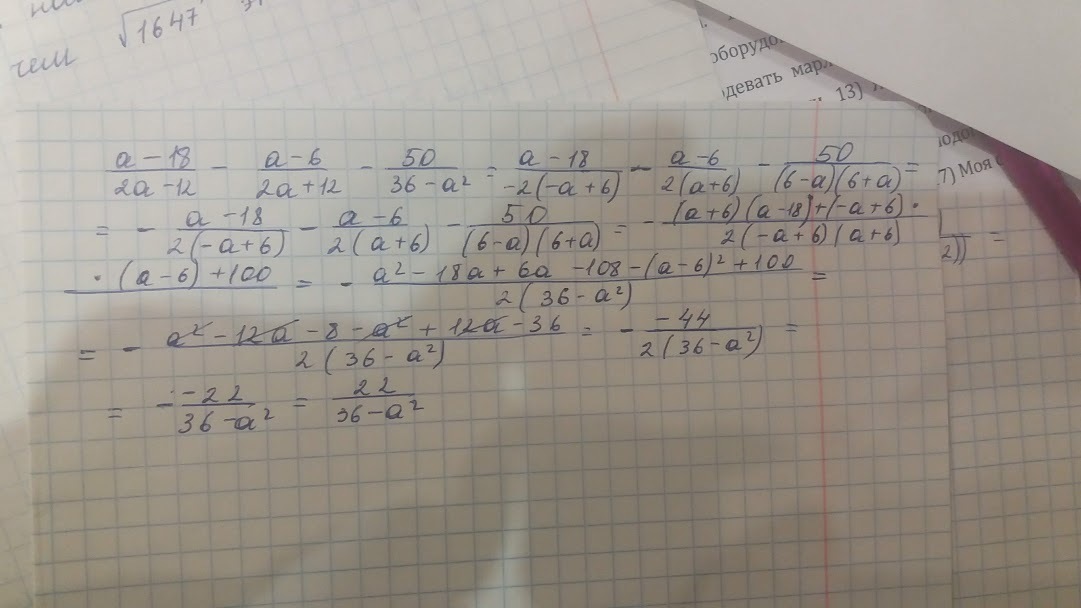 чем √1647
оборудо
девать марл
13)
7) Моя
(a-18)/(2a-12) - (a-6)/(2a+12) - 50/(36-a²) = (a-18)/(-2(-a+6)) - (a-6)/(2(a+6)) - 50/((6-a)(6+a)) =
= - (a-18)/(2(-a+6)) - (a-6)/(2(a+6)) - 50/((6-a)(6+a)) = - ((a+6)(a-18)+(-a+6)·)/(2(-a+6)(a+6))
2)) =
·(a-6)+100 = - (a²-18a+6a-108-(a-6)²+100)/(2(36-a²)) =
= - (a²-12a-8-a²+12a-36)/(2(36-a²)) = - (-44)/(2(36-a²)) =
= - (-22)/(36-a²) = 22/(36-a²)